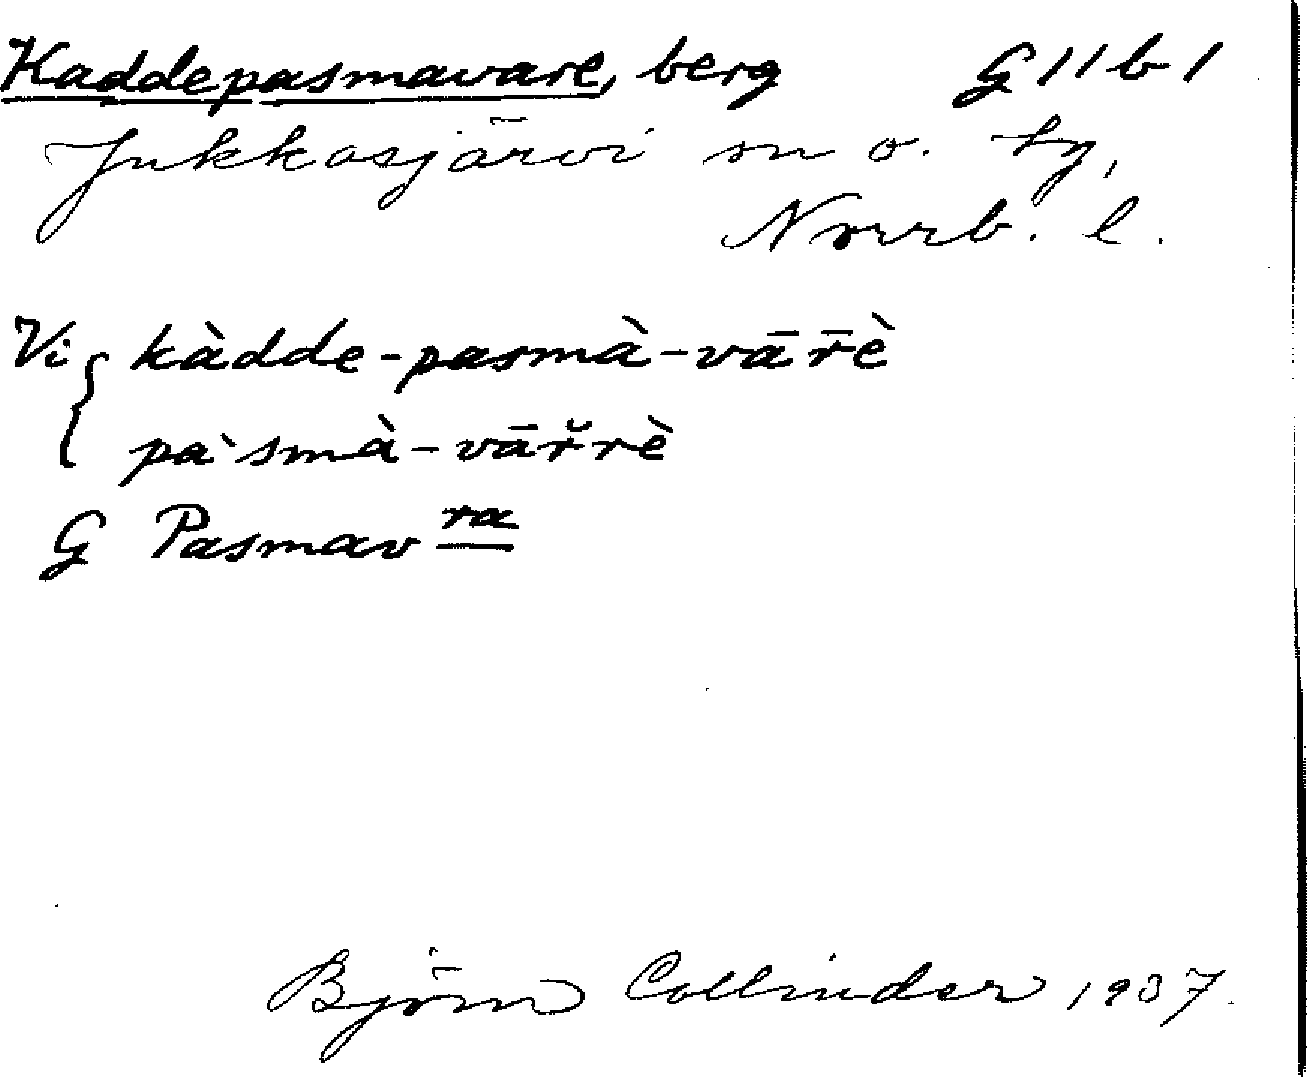 Kaddepasmavare, berg G 11 b 1
Jukkasjärvi sn o. tg,
Norrb. l.
Vi { kàdde-pasmà-vār̄è
pàsmà-vāřrè
G Pasmav ra
Björn Collinder 1937.